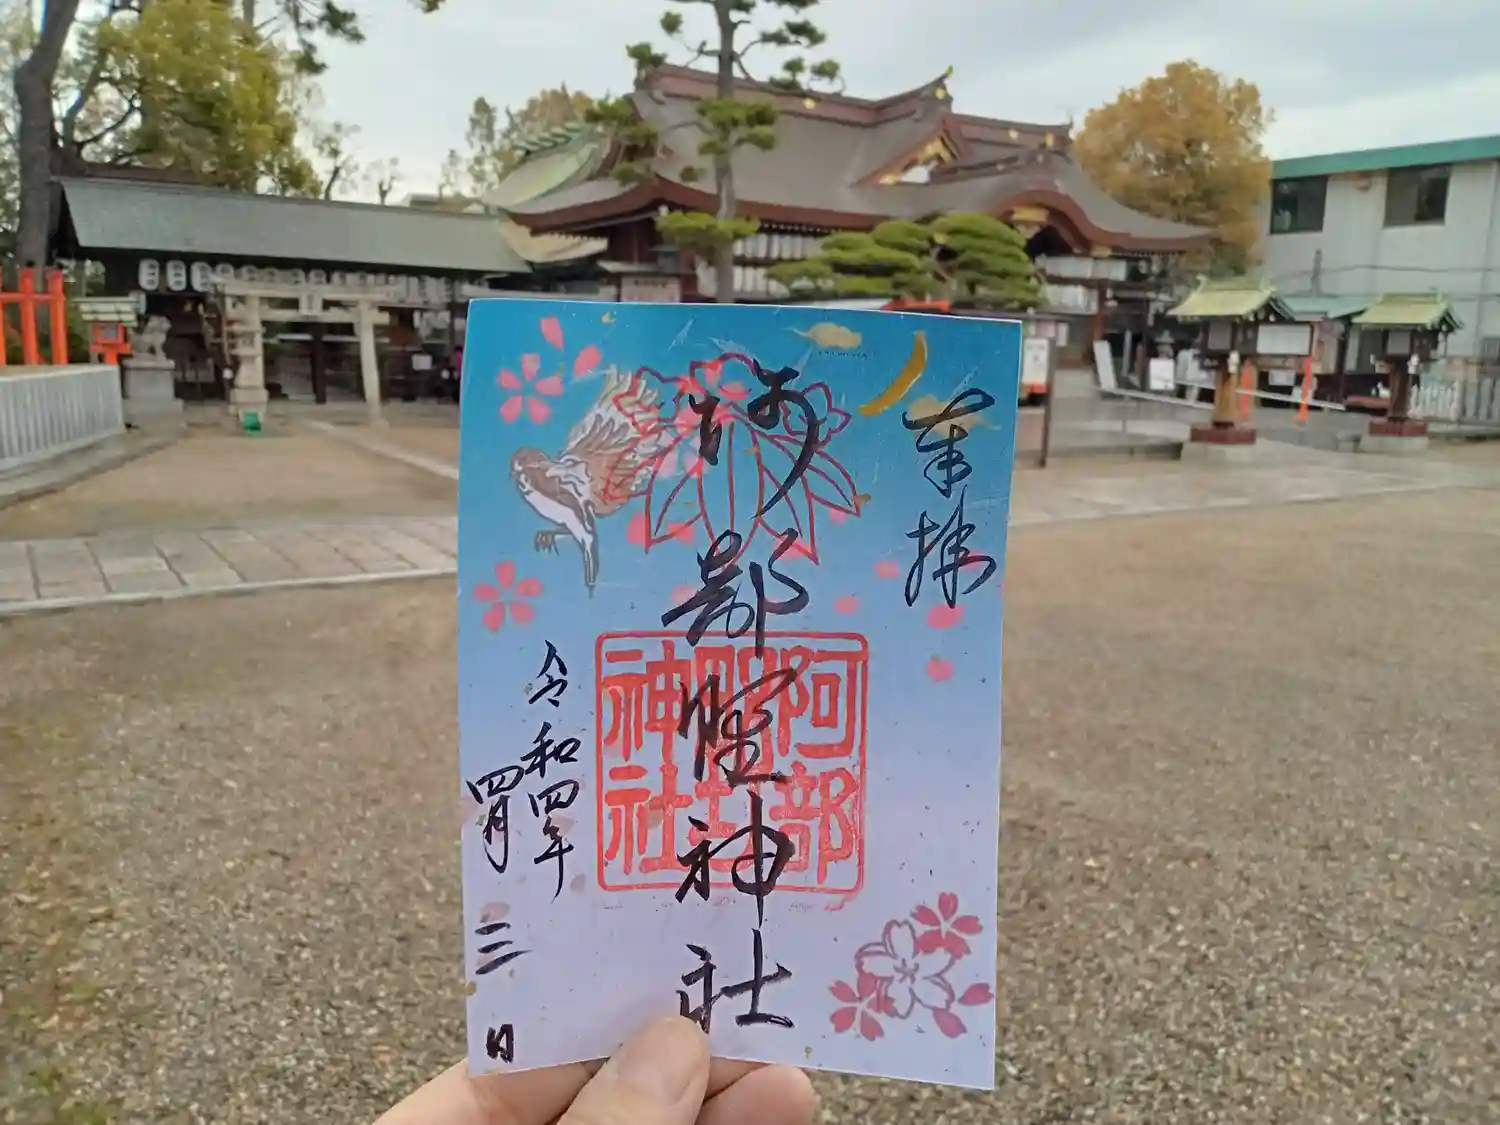 奉拝
阿部野神社
阿部野神社
令和四年
四月三日